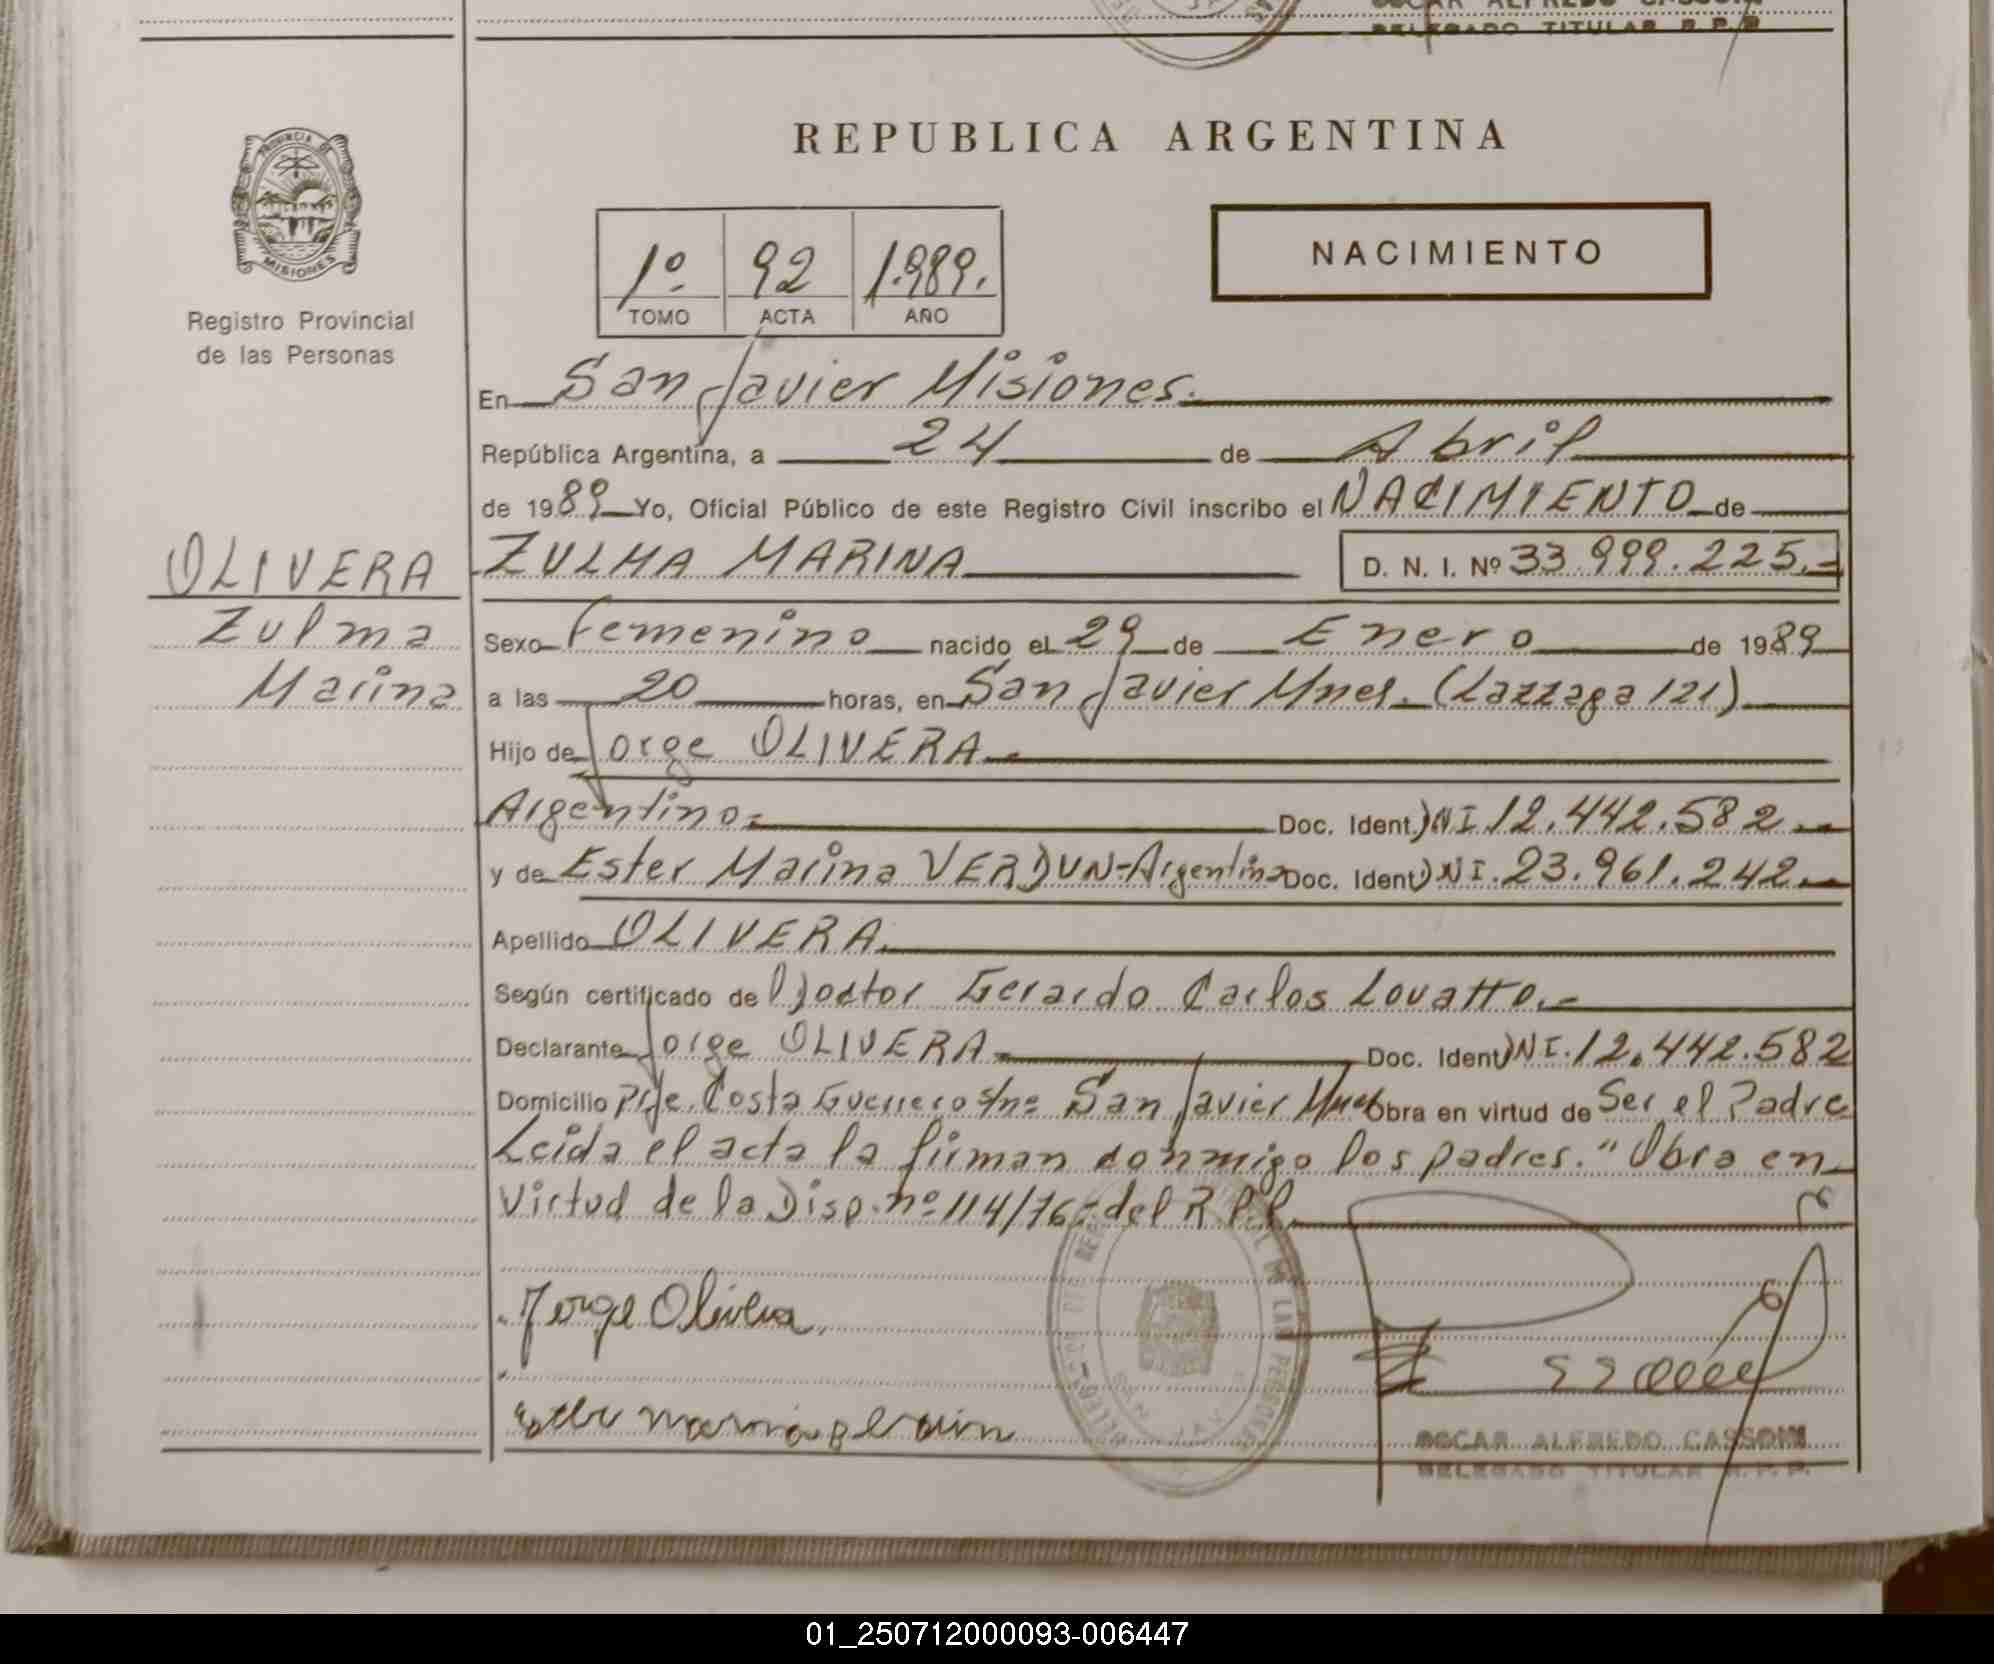 OSCAR ALFREDO CASSONI
DELEGADO TITULAR R. P. P.
PROVINCIA DE
MISIONES
Registro Provincial
de las Personas
REPUBLICA ARGENTINA
1º 92 1.989.
TOMO ACTA AÑO
NACIMIENTO
En San Javier Misiones.
República Argentina, a 24 de Abril
de 1989 Yo, Oficial Público de este Registro Civil inscribo el NACIMIENTO de
OLIVERA
Zulma
Marina
ZULMA MARINA D. N. I. Nº 33.999.225.-
Sexo Femenino nacido el 29 de Enero de 1989
a las 20 horas, en San Javier Mnes. (Lazzaga 121)
Hijo de Jorge OLIVERA.-
Argentino.- Doc. Ident. DNI. 12.442.582.-
y de Ester Marina VERDUN-Argentina Doc. Ident. DNI. 23.961.242.-
Apellido OLIVERA.
Según certificado de Doctor Gerardo Carlos Lovatto.-
Declarante Jorge OLIVERA.- Doc. Ident. DNI. 12.442.582
Domicilio Pje. Costa Guerrero s/nº San Javier Mnes Obra en virtud de Ser el Padre
Leida el acta la firman conmigo los padres. "Obra en
Virtud de la Disp. nº 114/76- del R.P.P.
Jorge Olivera
OSCAR ALFREDO CASSONI
DELEGADO TITULAR R. P. P.
01_250712000093-006447